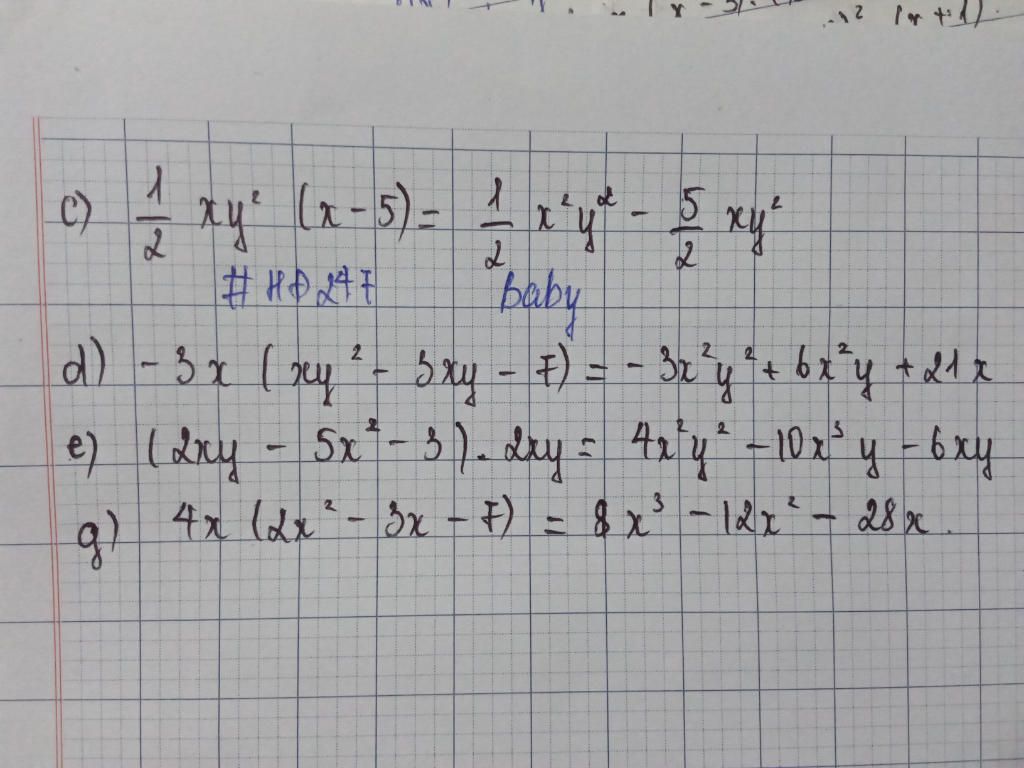 (x - 3)
x² (x + 1)
c) 1/2 xy² (x - 5) = 1/2 x²y² - 5/2 xy²
#HD247 Baby
d) -3x (xy² - 3xy - 7) = -3x²y² + 6x²y + 21x
e) (2xy - 5x² - 3) . 2xy = 4x²y² - 10x³y - 6xy
g) 4x (2x² - 3x - 7) = 8x³ - 12x² - 28x.